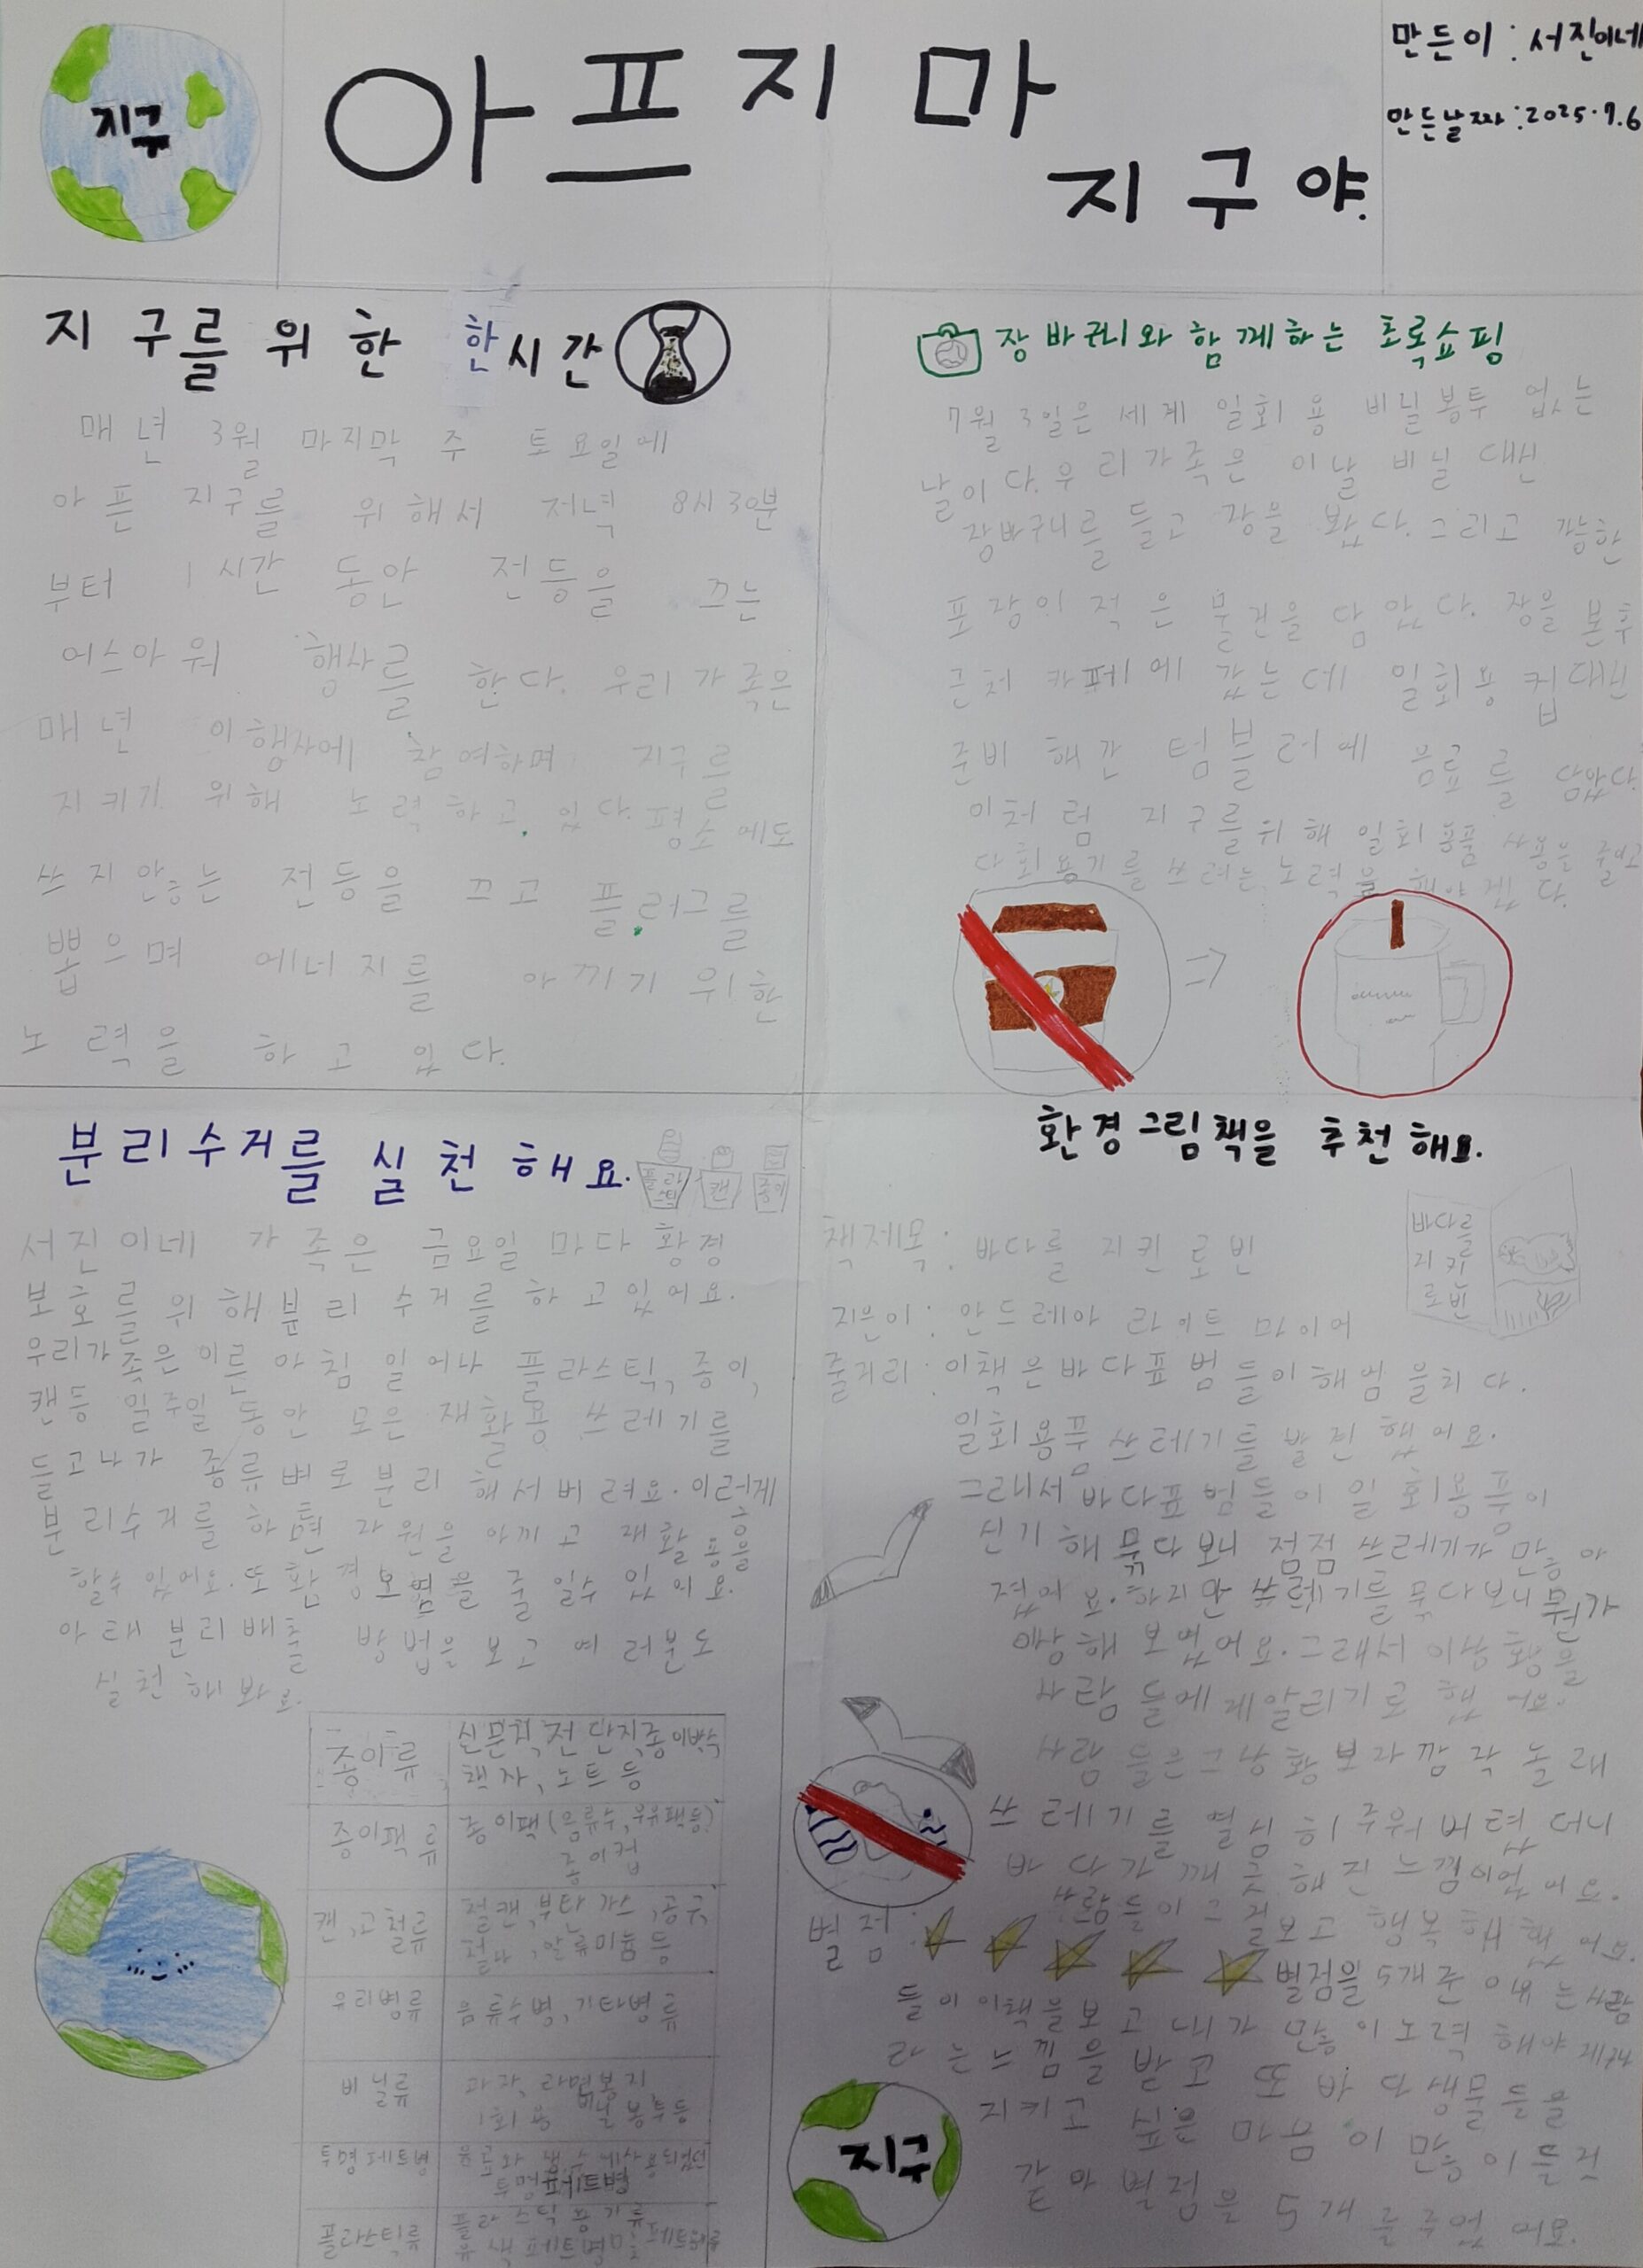 지구
아프지마
지구야.
만든이 : 서진이네
만든날짜 : 2025.7.6
지구를 위한 한시간
매년 3월 마지막 주 토요일에
아픈 지구를 위해서 저녁 8시 30분
부터 1시간 동안 전등을 끄는
어스아워 행사를 한다. 우리 가족은
매년 이 행사에 참여하며 지구를
지키기 위해 노력하고 있다. 평소에도
쓰지 않는 전등을 끄고 플러그를
뽑으며 에너지를 아끼기 위한
노력을 하고 있다.
장바구니와 함께하는 초록쇼핑
7월 3일은 세계 일회용 비닐봉투 없는
날이다. 우리가족은 이날 비닐 대신
장바구니를 들고 장을 봤다. 그리고 가능한
포장이 적은 물건을 담았다. 장을 본후
근처 카페에 갔는데 일회용 컵대신
준비해간 텀블러에 음료를 담았다.
이처럼 지구를 위해 일회용품 사용을 줄이고
다회용기를 쓰려는 노력을 해야겠다.
분리수거를 실천해요.
플라스틱
캔
종이
서진이네 가족은 금요일 마다 환경
보호를 위해 분리수거를 하고있어요.
우리가족은 이른 아침 일어나 플라스틱, 종이,
캔등 일주일 동안 모은 재활용 쓰레기를
들고나가 종류별로 분리해서 버려요. 이러게
분리수거를 하면 자원을 아끼고 재활용을
할수 있어요. 또 환경오염을 줄일수 있어요.
아래 분리배출 방법을 보고 여러분도
실천해봐요.
종이류 신문지, 전단지, 종이박스
책자, 노트 등
종이팩류 종이팩(음류수, 우유팩등)
종이컵
캔, 고철류 철캔, 부탄가스, 공구,
철사, 알류미늄 등
유리병류 음류수병, 기타병류
비닐류 과자, 라면봉지
1회용 비닐봉투등
투명페트병 음료와 생수에 사용되었던
투명페트병
플라스틱류 플라스틱 용기류
유색페트병 및
환경그림책을 추천해요.
바다를
지킨
로빈
책제목 : 바다를 지킨 로빈
지은이 : 안드레아 라이트 마이어
줄거리 : 이책은 바다표범들이 해엄을치다.
일회용품 쓰레기를 발견했어요.
그래서 바다표범들이 일회용품이
신기해 묶다보니 점점 쓰레기가 많아
졌어요. 하지만 쓰레기를 묶다보니 뭔가
이상해 보였어요. 그래서 이상황을
사람들에게 알리기로 했어요.
사람들은 그상황보자 깜짝 놀래
쓰레기를 열심히 주워버렸더니
바다가 깨끗해진 느낌이었어요.
사람들이 그걸보고 행복해했어요.
별점 :
별점을 5개 준 이유는 사람
들이 이책을 보고 내가 많이 노력해야지
라는 느낌을 받고 또 바다생물들을
지키고 싶은 마음이 많이 들것
같아 별점을 5개를 주었어요.
지구